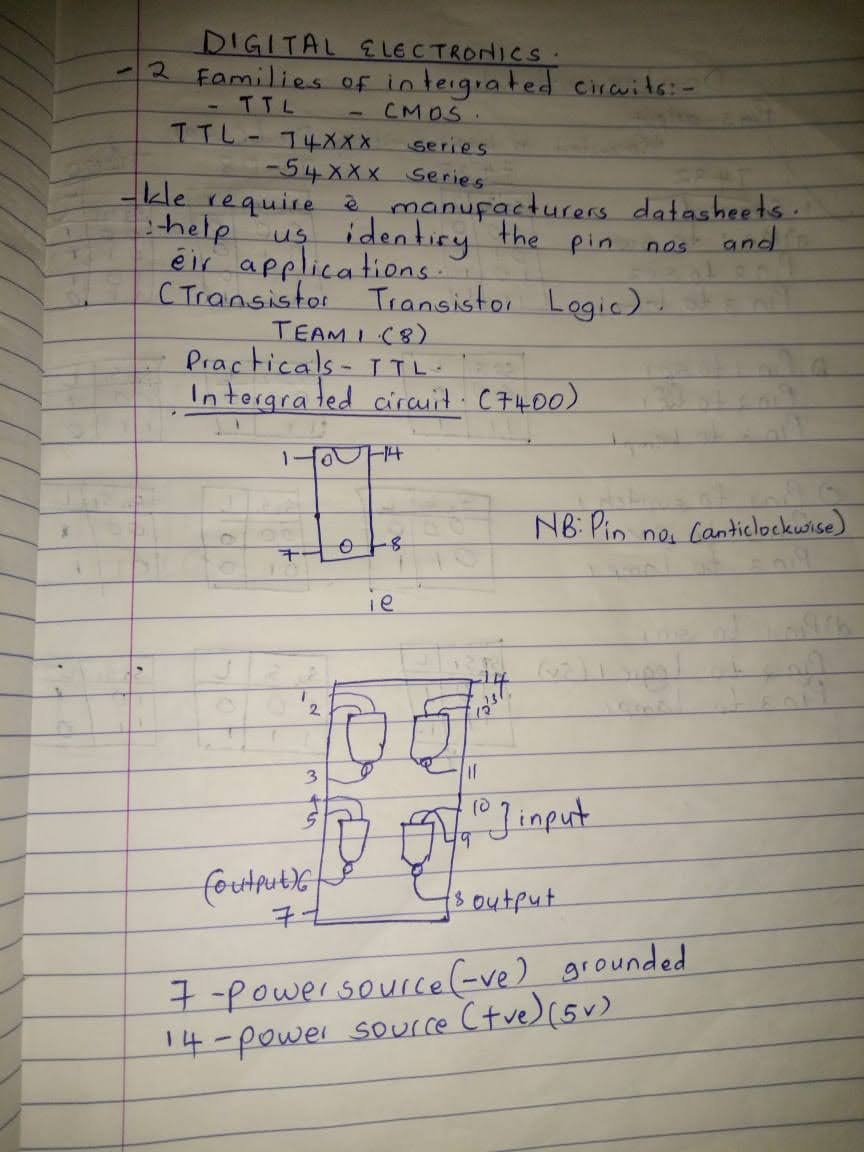 DIGITAL ELECTRONICS.
- 2 Families of intergrated circuits:-
- TTL - CMOS.
TTL - 74XXX series
- 54XXX series
- We require è manufacturers datasheets.
: help us identify the pin nos and
èir applications.
(Transistor Transistor Logic).
TEAM 1 (8)
Practicals - TTL.
Intergrated circuit. (7400)
1 14
7 8
NB: Pin nos (anticlockwise)
ie
1 14
2 13
12
3 11
4 10 ] input
5 9
(output) 6
8 output
7
7 - power source (-ve) grounded
14 - power source (+ve) (5v)